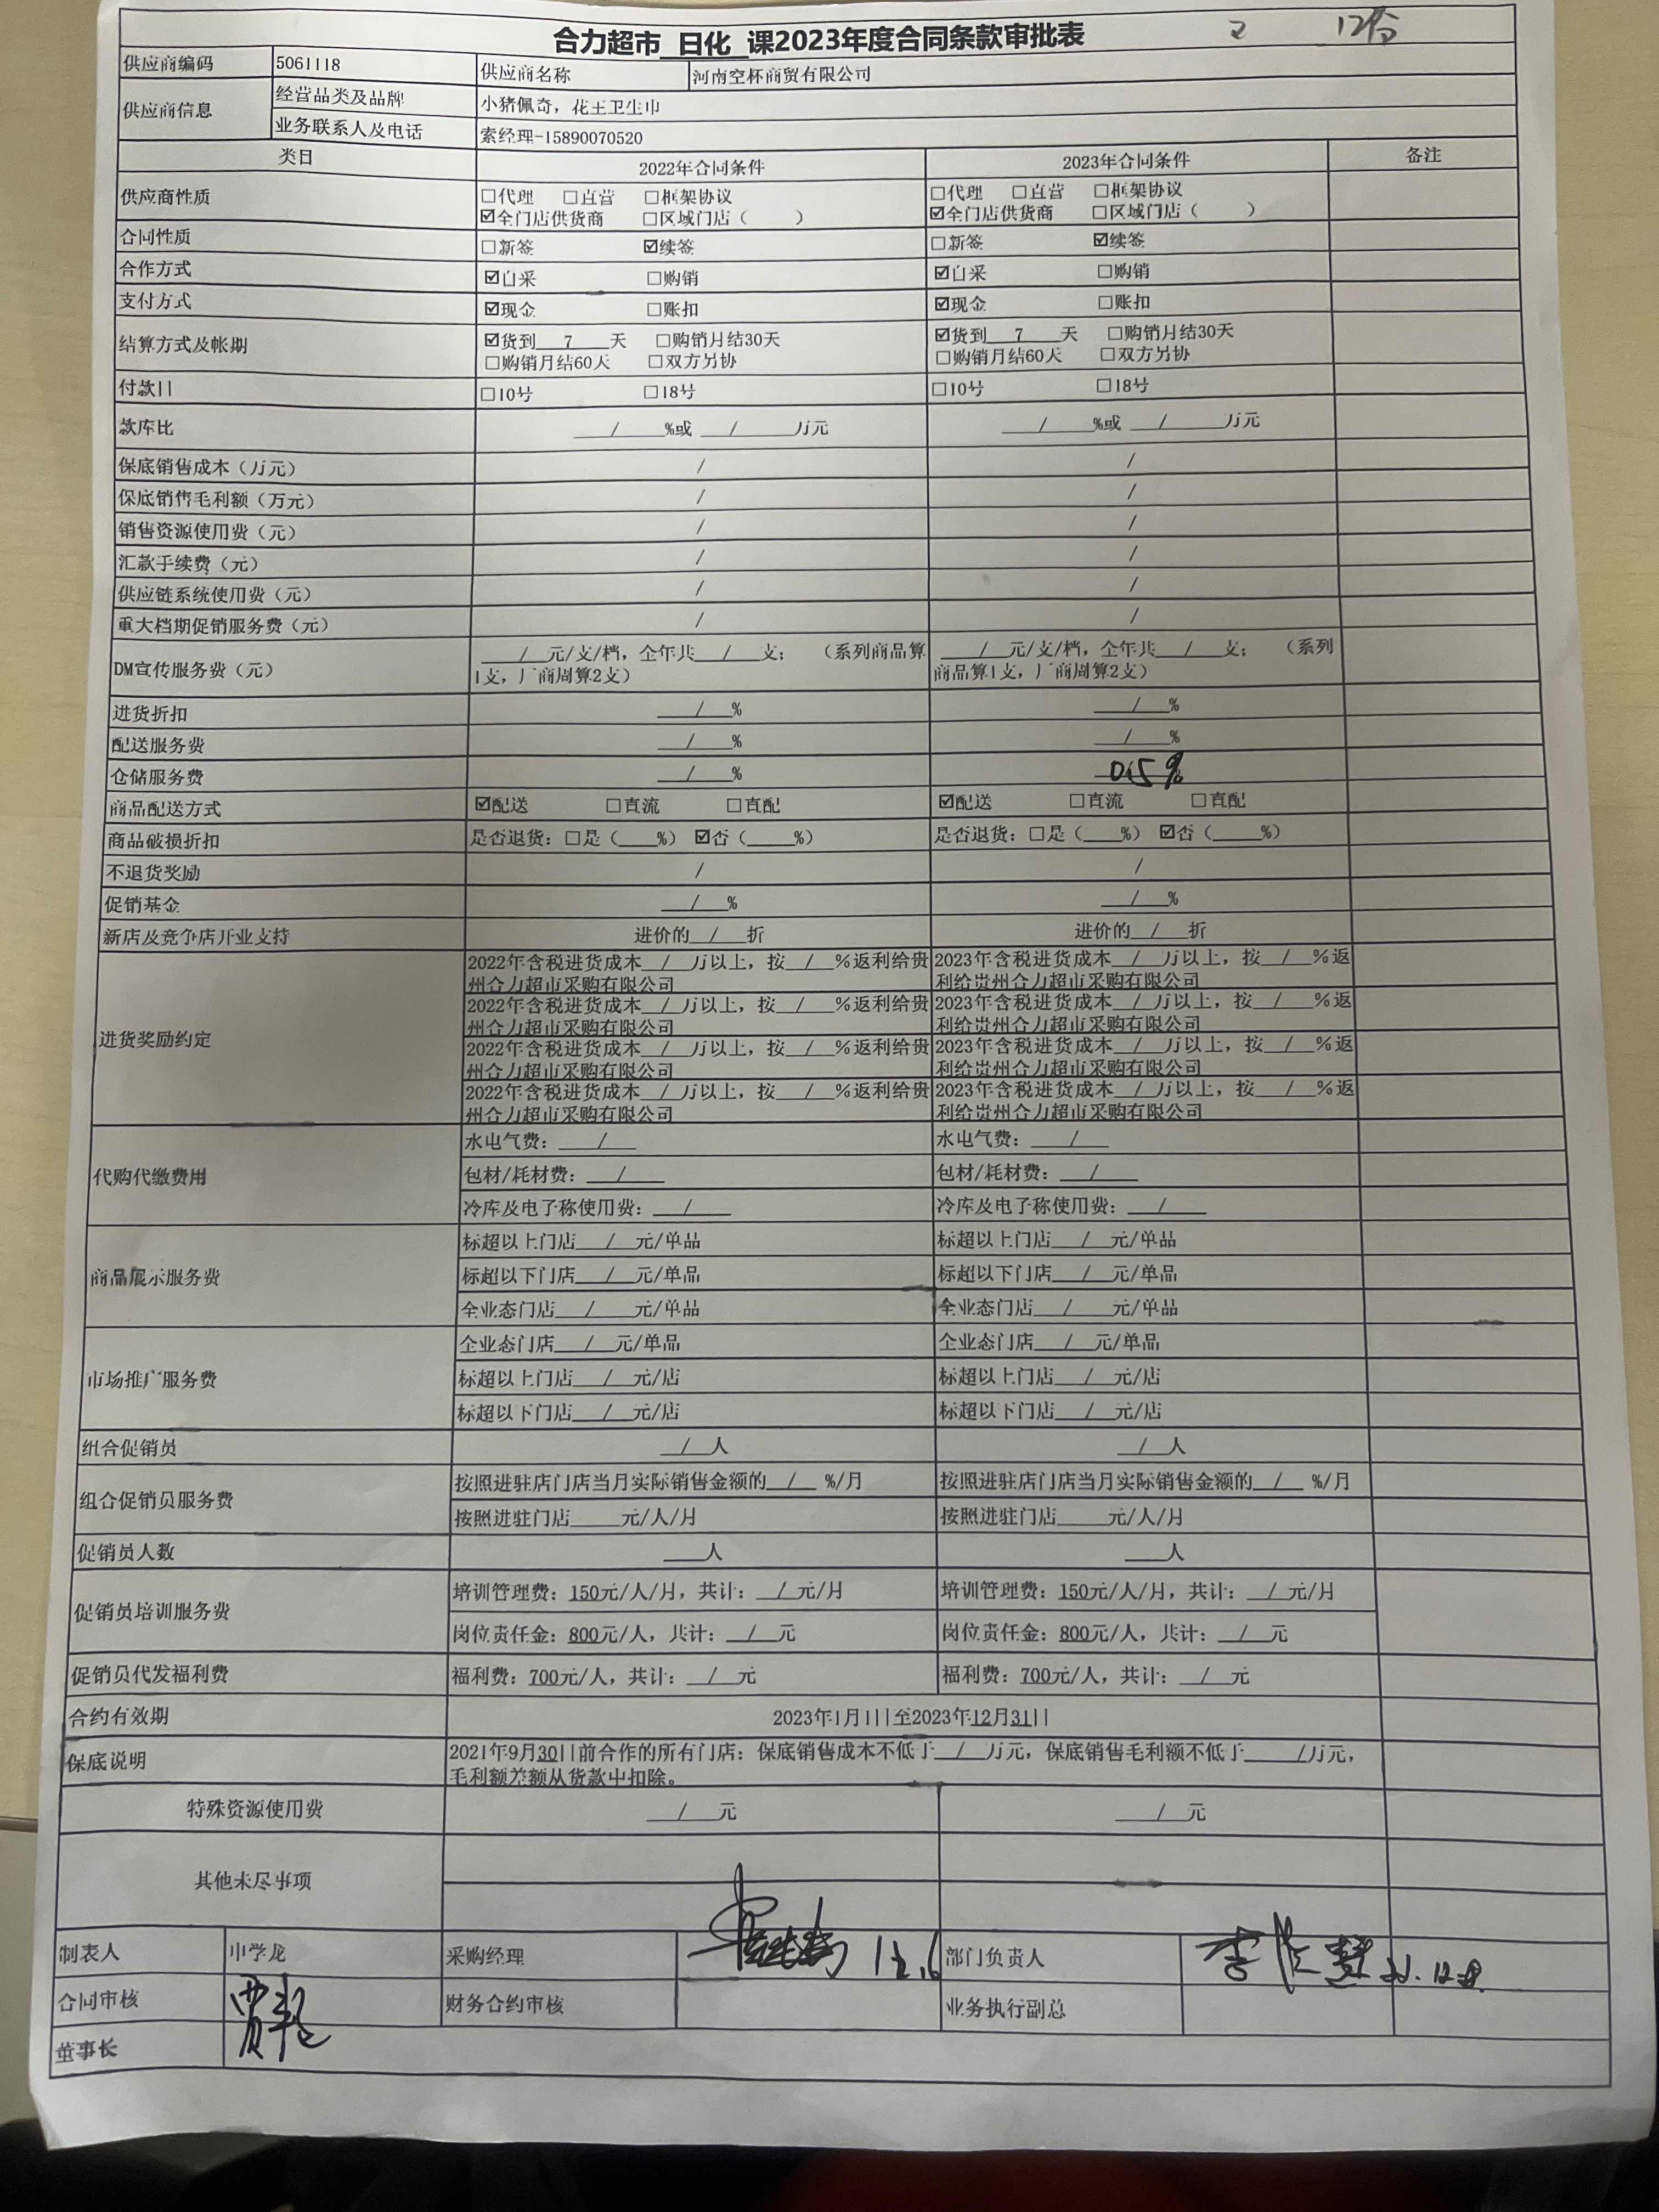 合力超市 日化 课2023年度合同条款审批表
供应商编码 5061118 供应商名称 河南空杯商贸有限公司
供应商信息 经营品类及品牌 小猪佩奇，花王卫生巾
业务联系人及电话 索经理-15890070520
类目 2022年合同条件 2023年合同条件 备注
供应商性质 □代理 □直营 □框架协议 □代理 □直营 □框架协议
☑全门店供货商 □区域门店（ ） ☑全门店供货商 □区域门店（ ）
合同性质 □新签 ☑续签 □新签 ☑续签
合作方式 ☑自采 □购销 ☑自采 □购销
支付方式 ☑现金 □账扣 ☑现金 □账扣
结算方式及帐期 ☑货到 7 天 □购销月结30天 ☑货到 7 天 □购销月结30天
□购销月结60天 □双方另协 □购销月结60天 □双方另协
付款日 □10号 □18号 □10号 □18号
款库比 / %或 / 万元 / %或 / 万元
保底销售成本（万元） / /
保底销售毛利额（万元） / /
销售资源使用费（元） / /
汇款手续费（元） / /
供应链系统使用费（元） / /
重大档期促销服务费（元） / /
DM宣传服务费（元） / 元/支/档，全年共 / 支； （系列商品算 / 元/支/档，全年共 / 支； （系列
1支，厂商周算2支） 商品算1支，厂商周算2支）
进货折扣 / % / %
配送服务费 / % / %
仓储服务费 / %
商品配送方式 ☑配送 □直流 □直配 ☑配送 □直流 □直配
商品破损折扣 是否退货：□是（ %） ☑否（ %） 是否退货：□是（ %） ☑否（ %）
不退货奖励 / /
促销基金 / % / %
新店及竞争店开业支持 进价的 / 折 进价的 / 折
进货奖励约定 2022年含税进货成本 / 万以上，按 / %返利给贵 2023年含税进货成本 / 万以上，按 / %返
州合力超市采购有限公司 利给贵州合力超市采购有限公司
2022年含税进货成本 / 万以上，按 / %返利给贵 2023年含税进货成本 / 万以上，按 / %返
州合力超市采购有限公司 利给贵州合力超市采购有限公司
2022年含税进货成本 / 万以上，按 / %返利给贵 2023年含税进货成本 / 万以上，按 / %返
州合力超市采购有限公司 利给贵州合力超市采购有限公司
2022年含税进货成本 / 万以上，按 / %返利给贵 2023年含税进货成本 / 万以上，按 / %返
州合力超市采购有限公司 利给贵州合力超市采购有限公司
代购代缴费用 水电气费： / 水电气费： /
包材/耗材费： / 包材/耗材费： /
冷库及电子称使用费： / 冷库及电子称使用费： /
商品展示服务费 标超以上门店 / 元/单品 标超以上门店 / 元/单品
标超以下门店 / 元/单品 标超以下门店 / 元/单品
全业态门店 / 元/单品 全业态门店 / 元/单品
市场推广服务费 企业态门店 / 元/单品 企业态门店 / 元/单品
标超以上门店 / 元/店 标超以上门店 / 元/店
标超以下门店 / 元/店 标超以下门店 / 元/店
组合促销员 / 人 / 人
组合促销员服务费 按照进驻店门店当月实际销售金额的 / %/月 按照进驻店门店当月实际销售金额的 / %/月
按照进驻门店 元/人/月 按照进驻门店 元/人/月
促销员人数 人 人
促销员培训服务费 培训管理费：150元/人/月，共计： / 元/月 培训管理费：150元/人/月，共计： / 元/月
岗位责任金：800元/人，共计： / 元 岗位责任金：800元/人，共计： / 元
促销员代发福利费 福利费：700元/人，共计： / 元 福利费：700元/人，共计： / 元
合约有效期 2023年1月1日至2023年12月31日
保底说明 2021年9月30日前合作的所有门店：保底销售成本不低于 / 万元，保底销售毛利额不低于 /万元，
毛利额差额从货款中扣除。
特殊资源使用费 / 元 / 元
其他未尽事项
制表人 采购经理 12.6 部门负责人
合同审核 财务合约审核 业务执行副总
董事长